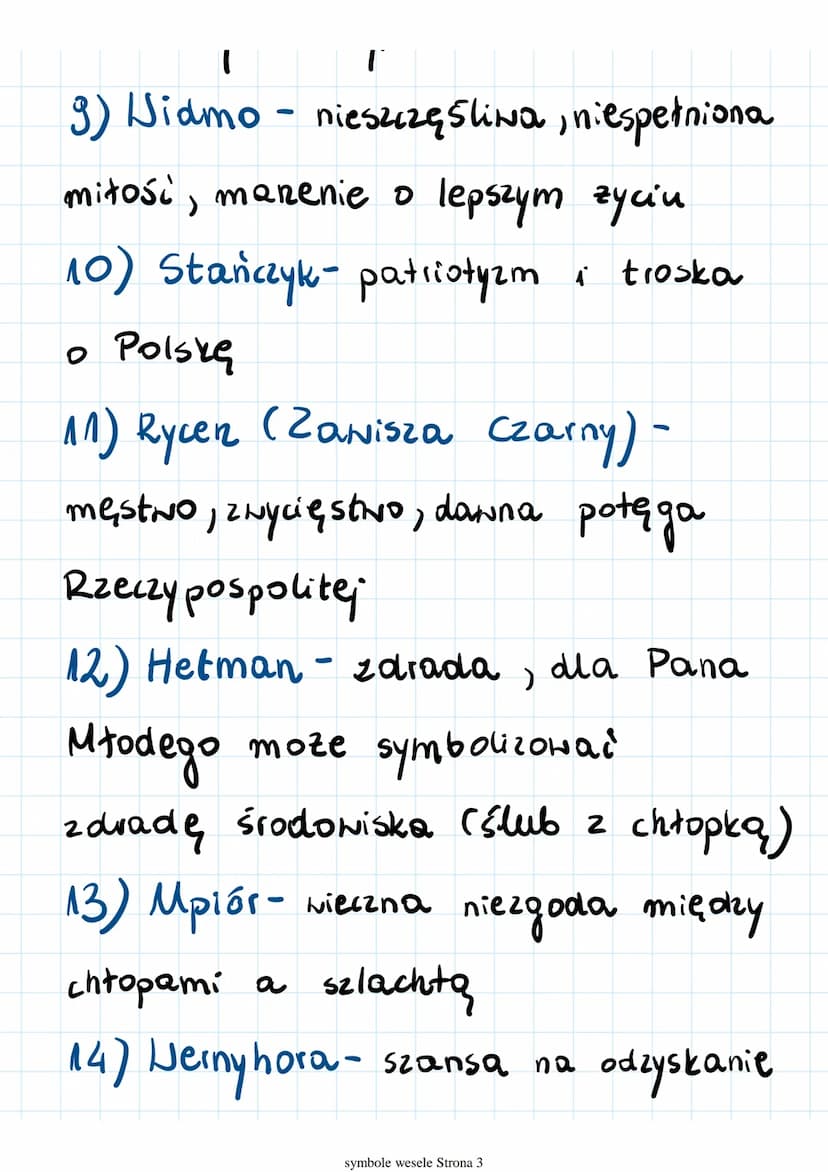 9) Widmo - nieszczęśliwa, niespełniona
miłość, marzenie o lepszym życiu
10) Stańczyk- patriotyzm i troska
o Polskę
11) Rycerz (Zawisza Czarny) -
męstwo, zwycięstwo, dawna potęga
Rzeczypospolitej
12) Hetman - zdrada, dla Pana
Młodego może symbolizować
zdradę środowiska (ślub z chłopką)
13) Upiór- wieczna niezgoda między
chłopami a szlachtą
14) Wernyhora- szansa na odzyskanie
symbole wesele Strona 3